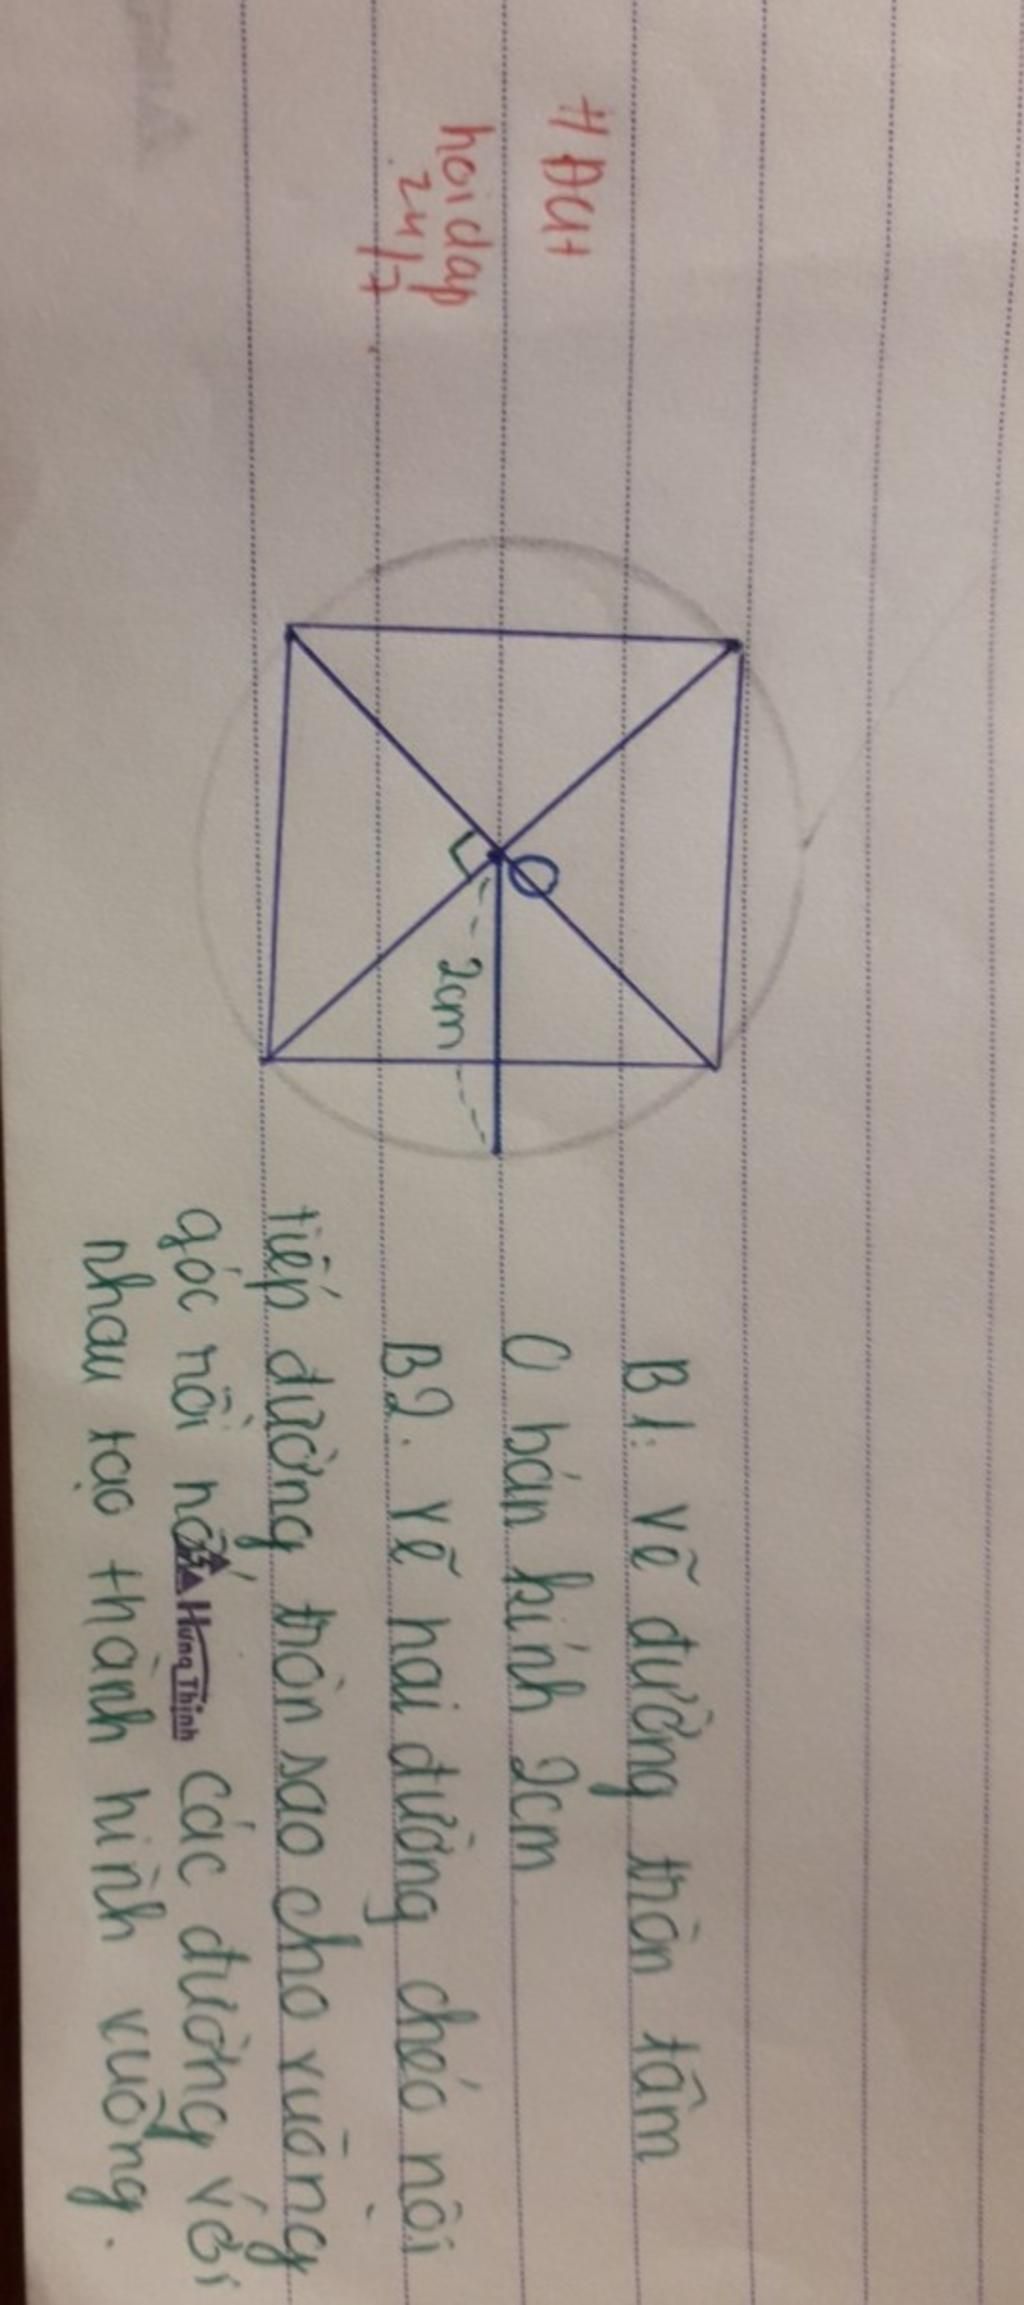 # ACH
hoidap
24/7
O
2cm
B1: vẽ đường tròn tâm
O bán kính 2cm
B2. vẽ hai đường chéo nội
tiếp đường tròn sao cho vuông
góc rồi nối các đường với
nhau tạo thành hình vuông.
Hưng Thịnh